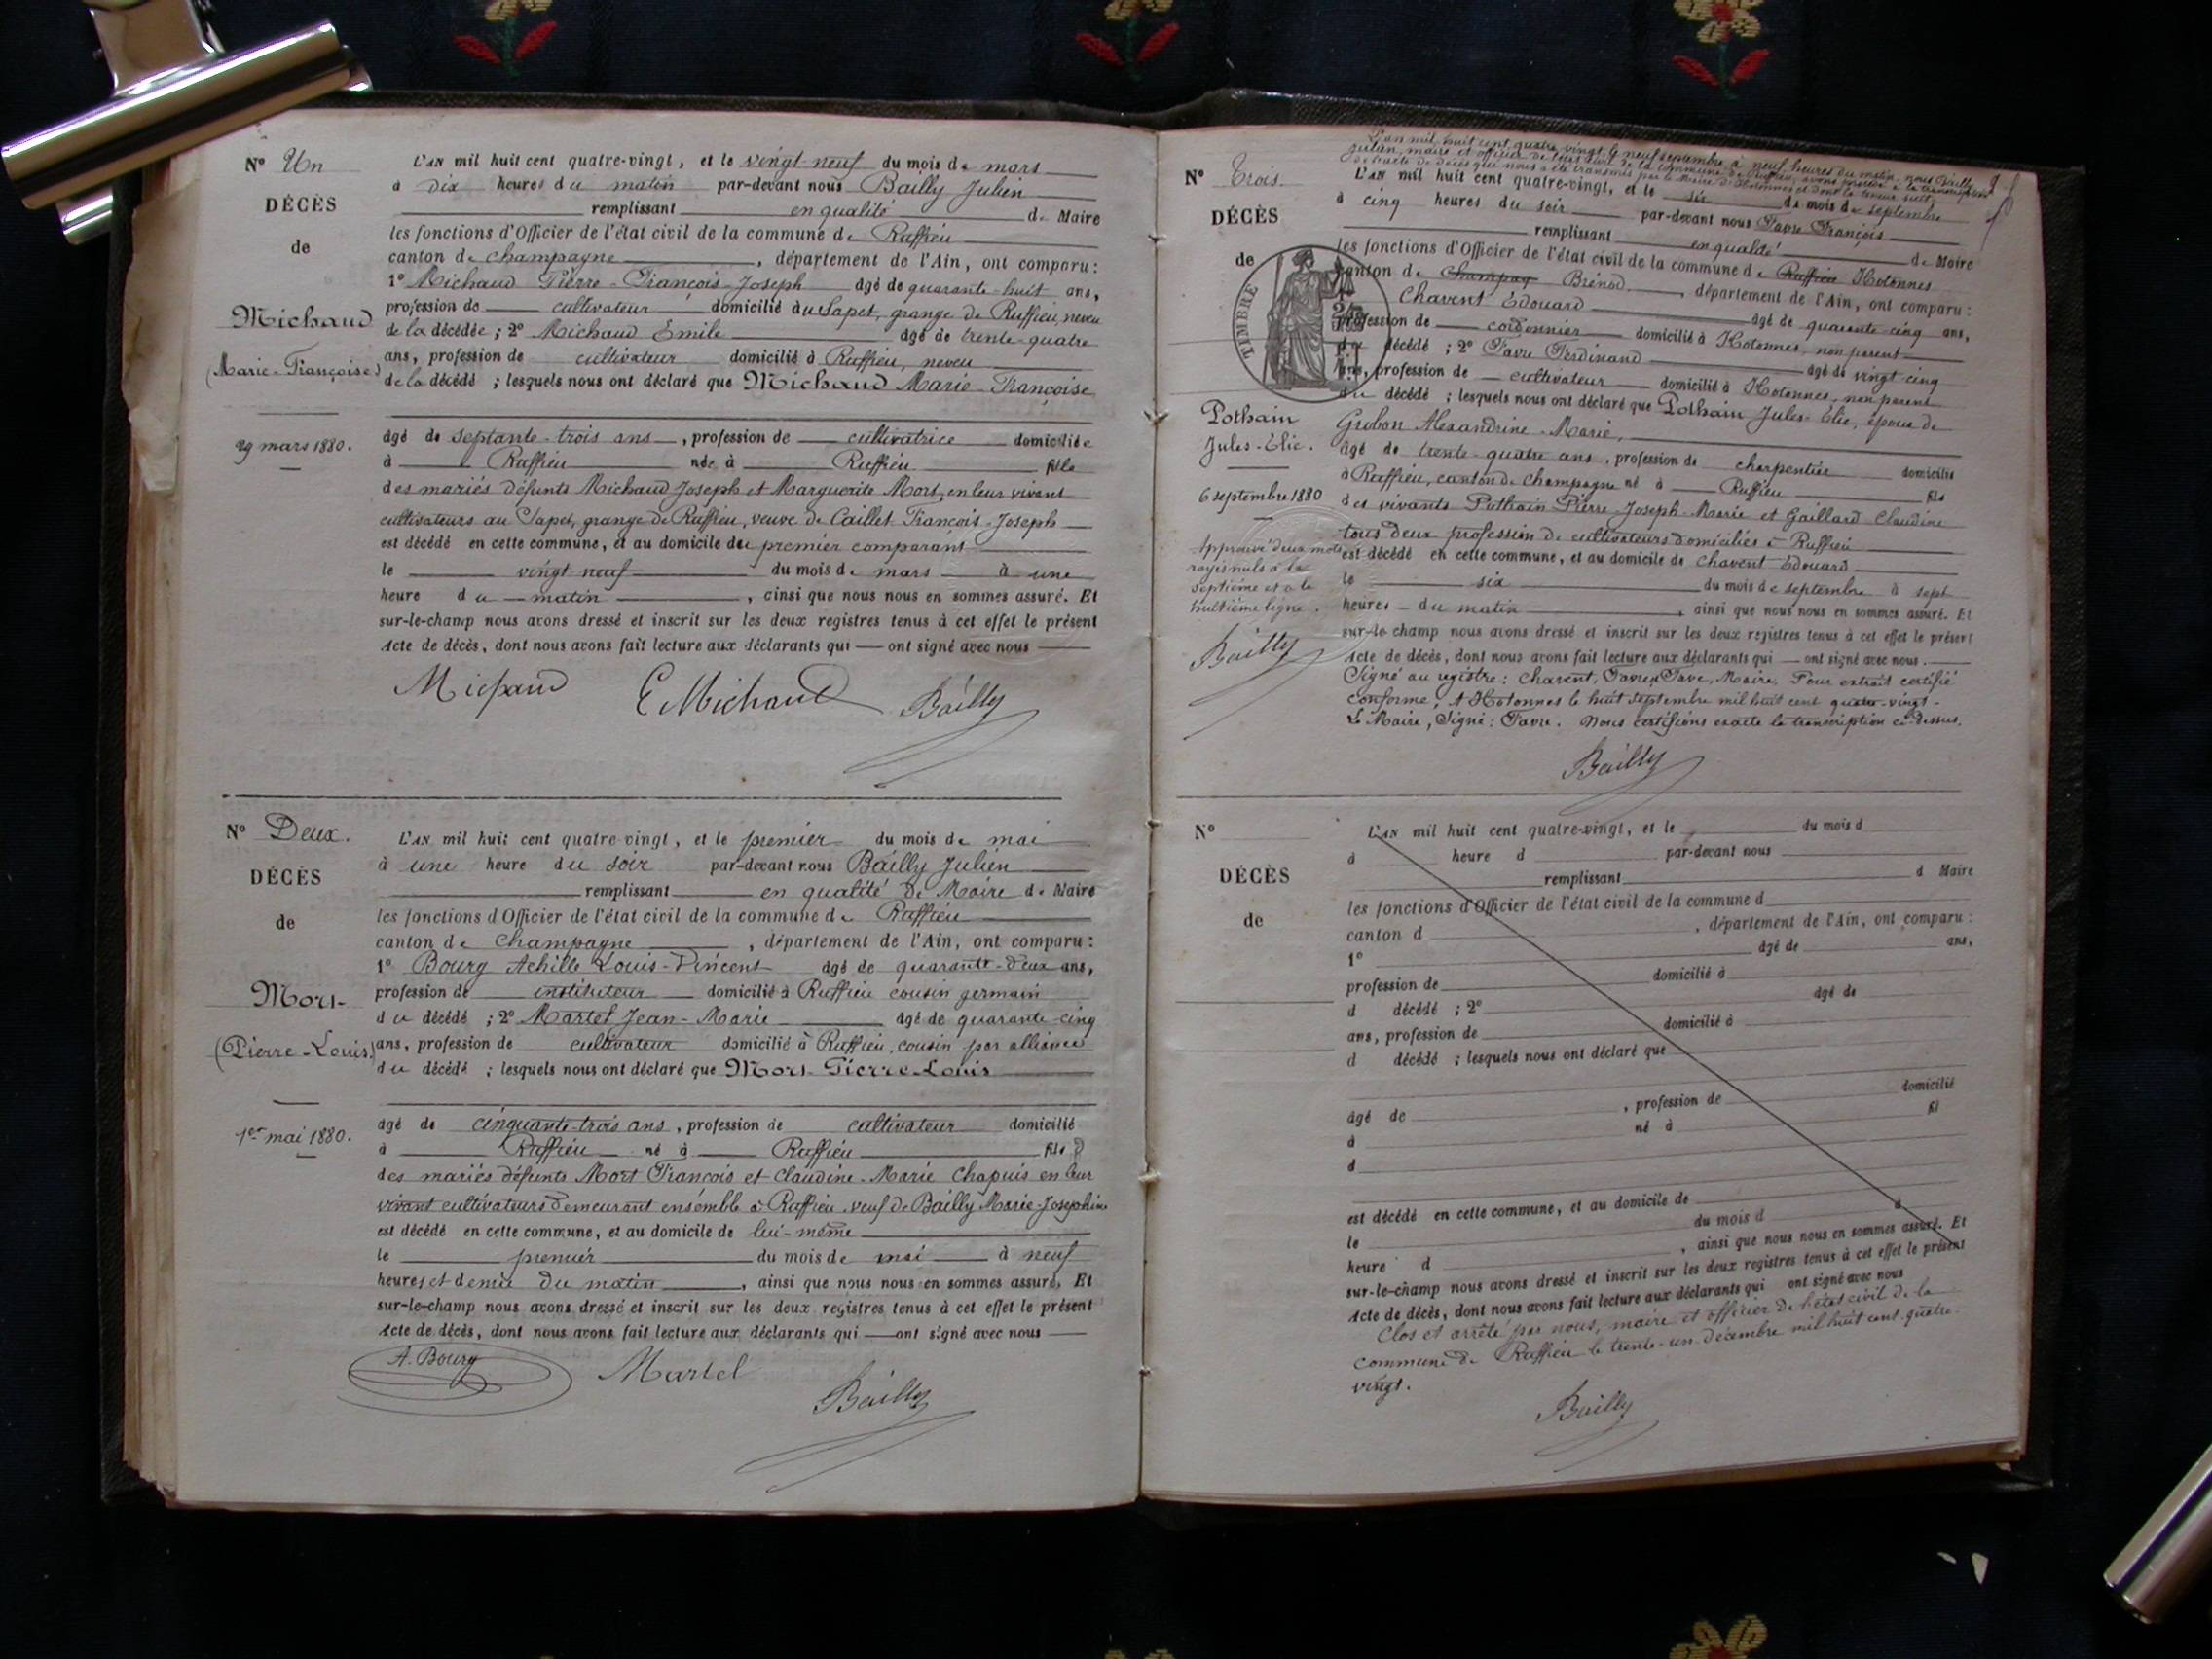 N° Un
DÉCÈS
de
Michaud
(Marie-Françoise)
29 mars 1880.
L'AN mil huit cent quatre-vingt, et le vingt-neuf du mois de mars
à dix heures du matin par-devant nous Bailly Julien
remplissant en qualité de Maire
les fonctions d'Officier de l'état civil de la commune de Ruffieu
canton de Champagne, département de l'Ain, ont comparu:
1° Michaud Pierre-François-Joseph âgé de quarante-huit ans,
profession de cultivateur domicilié au Sapet, grange de Ruffieu, neveu
de la décédée; 2° Michaud Emile âgé de trente-quatre
ans, profession de cultivateur domicilié à Ruffieu, neveu
de la décédé; lesquels nous ont déclaré que Michaud Marie-Françoise
âgé de septante-trois ans, profession de cultivatrice domiciliée
à Ruffieu née à Ruffieu fille
des mariés défunts Michaud Joseph et Marguerite Mort, en leur vivant
cultivateurs au Sapet, grange de Ruffieu, veuve de Caillet François-Joseph
est décédé en cette commune, et au domicile du premier comparant
le vingt neuf du mois de mars à une
heure du matin, ainsi que nous nous en sommes assuré. Et
sur-le-champ nous avons dressé et inscrit sur les deux registres tenus à cet effet le présent
Acte de décès, dont nous avons fait lecture aux déclarants qui ont signé avec nous
Michaud E Michaud Bailly
N° Deux.
DÉCÈS
de
Mort
(Pierre-Louis)
1er mai 1880.
L'AN mil huit cent quatre-vingt, et le premier du mois de mai
à une heure du soir par-devant nous Bailly Julien
remplissant en qualité de Maire de Maire
les fonctions d'Officier de l'état civil de la commune de Ruffieu
canton de Champagne, département de l'Ain, ont comparu:
1° Bourg Achille Louis-Vincent âgé de quarante-deux ans,
profession de instituteur domicilié à Ruffieu cousin germain
du décédé; 2° Martel Jean-Marie âgé de quarante-cinq
ans, profession de cultivateur domicilié à Ruffieu, cousin par alliance
du décédé; lesquels nous ont déclaré que Mort Pierre-Louis
âgé de cinquante-trois ans, profession de cultivateur domicilié
à Ruffieu né à Ruffieu fils
des mariés défunts Mort François et Claudine-Marie Chapuis en leur
vivant cultivateurs demeurant ensemble à Ruffieu, veuf de Bailly Marie-Joséphine
est décédé en cette commune, et au domicile de lui-même
le premier du mois de mai à neuf
heures et demie du matin, ainsi que nous nous en sommes assuré. Et
sur-le-champ nous avons dressé et inscrit sur les deux registres tenus à cet effet le présent
Acte de décès, dont nous avons fait lecture aux déclarants qui ont signé avec nous
A. Bourg Martel Bailly
L'an mil huit cent quatre vingt le neuf septembre à neuf heures du matin, nous Bailly
Julien, maire et officier de l'état civil de la commune de Ruffieu, avons procédé à la transcription
de l'acte de décès qui nous a été transmis par le Maire d'Hotonnes et dont la teneur suit:
N° Trois.
DÉCÈS
de
TIMBRE
Pothain
Jules-Elie.
6 septembre 1880
Approuvé deux mots
rayés nuls à la
septième et à la
huitième ligne.
Bailly
L'AN mil huit cent quatre-vingt, et le six du mois de septembre
à cinq heures du soir par-devant nous Favre François
remplissant en qualité de Maire
les fonctions d'Officier de l'état civil de la commune de Ruffieu Hotonnes
canton de Champag Brénod, département de l'Ain, ont comparu:
Chavent Edouard âgé de quarante-cinq ans,
profession de cordonnier domicilié à Hotonnes, non parent
du décédé; 2° Favre Ferdinand âgé de vingt-cinq
ans, profession de cultivateur domicilié à Hotonnes, non parent
du décédé; lesquels nous ont déclaré que Pothain Jules-Elie, époux de
Grobon Alexandrine-Marie,
âgé de trente-quatre ans, profession de charpentier domicilié
à Ruffieu, canton de Champagne né à Ruffieu fils
des vivants Pothain Pierre-Joseph-Marie et Gaillard Claudine
tous deux profession de cultivateurs domiciliés à Ruffieu
est décédé en cette commune, et au domicile de Chavent Edouard
le six du mois de septembre à sept
heures du matin, ainsi que nous nous en sommes assuré. Et
sur-le champ nous avons dressé et inscrit sur les deux registres tenus à cet effet le présent
Acte de décès, dont nous avons fait lecture aux déclarants qui ont signé avec nous.
Signé au registre: Chavent, Favre, Favre, Maire. Pour extrait certifié
conforme, à Hotonnes le huit septembre mil huit cent quatre-vingt.
Le Maire, Signé: Favre. Nous certifions exacte la transcription ci-dessus.
Bailly
N°
DÉCÈS
de
L'AN mil huit cent quatre-vingt, et le du mois d
à heure d par-devant nous
remplissant d Maire
les fonctions d'Officier de l'état civil de la commune d
canton d, département de l'Ain, ont comparu:
1° âgé de ans,
profession de domicilié à
d décédé; 2° âgé de
ans, profession de domicilié à
d décédé; lesquels nous ont déclaré que
âgé de, profession de domicilié
à né à fil
d
est décédé en cette commune, et au domicile de
le du mois d à
heure d, ainsi que nous nous en sommes assuré. Et
sur-le-champ nous avons dressé et inscrit sur les deux registres tenus à cet effet le présent
Acte de décès, dont nous avons fait lecture aux déclarants qui ont signé avec nous
Clos et arrêté par nous, maire et officier de l'état civil de la
commune de Ruffieu le trente-un décembre mil huit cent quatre-
vingt.
Bailly